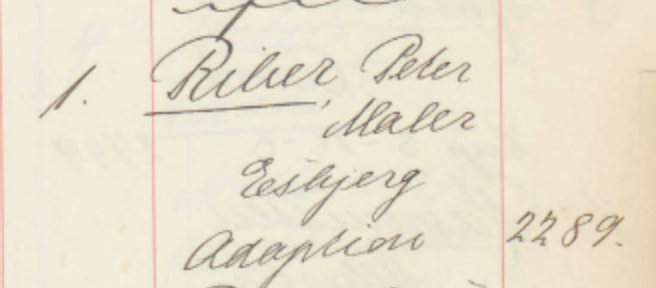 1. Riber, Peter
Maler
Esbjerg
Adaption 2289.